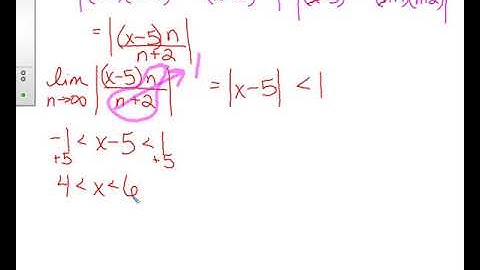 = |(x-5)n / n+2|
lim n→∞ |(x-5)n / n+2| 1 = |x-5| < 1
-1 < x-5 < 1
+5 +5
4 < x < 6